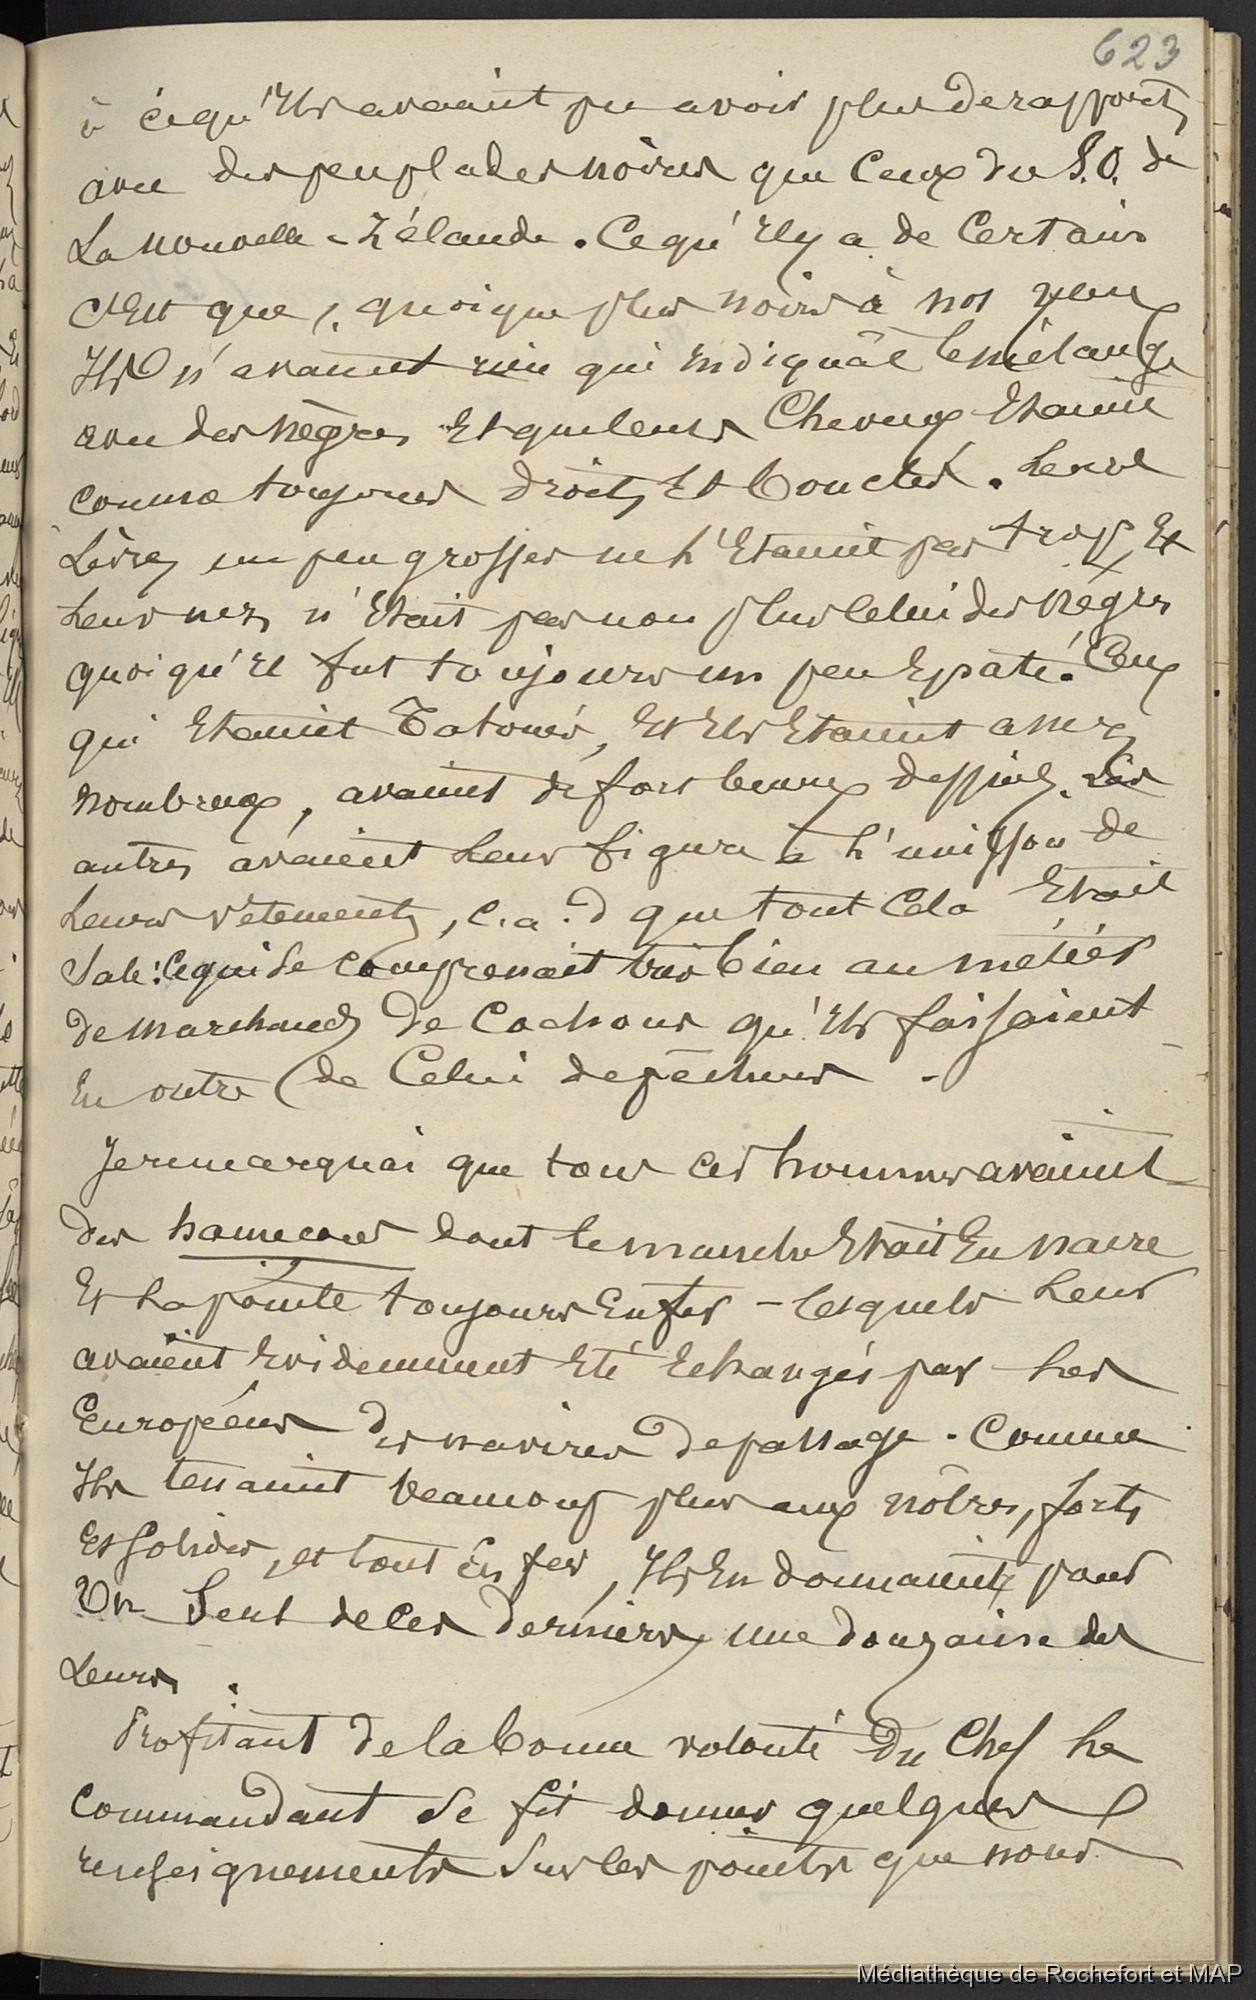 623
à ce qu'Ils avaient pu avoir plus de rapports
avec des peuplades noires que Ceux du S.O. de
La nouvelle-Zélande. Ce qu'Il y a de Certain
C'Est que, quoique plus noirs à nos yeux
Ils n'avaient rien qui Indiquât le mélange
avec des nègres Et que leurs Cheveux Etaient
comme toujours droits Et bouclés. Leurs
Lèvres un peu grosses ne l'Etaient pas trop, Et
Leur nez, n'Etait pas non plus Celui des Nègres
quoi qu'Il fut toujours un peu Epaté. Ceux
qui Etaient Tatoués, Et Ils Etaient assez
nombreux, avaient de fort beaux dessins. Les
autres avaient Leur figure à L'unisson de
Leurs vêtements, c.a.d que tout Cela Etait
Sale: Ce qui Se comprenait très bien au métier
de marchands de Cochons qu'Ils faisaient
En outre de Celui de pêcheurs.
Je remarquai que tous ces hommes avaient
des hameçons dont le manche Etait En nacre
Et La pointe toujours En fer - lesquels Leur
avaient Evidemment Eté Echangés par Les
Européens des navires de passage. Comme
Ils tenaient beaucoup plus aux nôtres, forts
Et Solides, et tout En fer, Ils En donnaient pour
Un Seul de Ces derniers, une douzaine des
Leurs.
Profitant de la bonne volonté du Chef Le
Commandant Se fit donner quelques
renseignements Sur les points que nous
Médiathèque de Rochefort et MAP